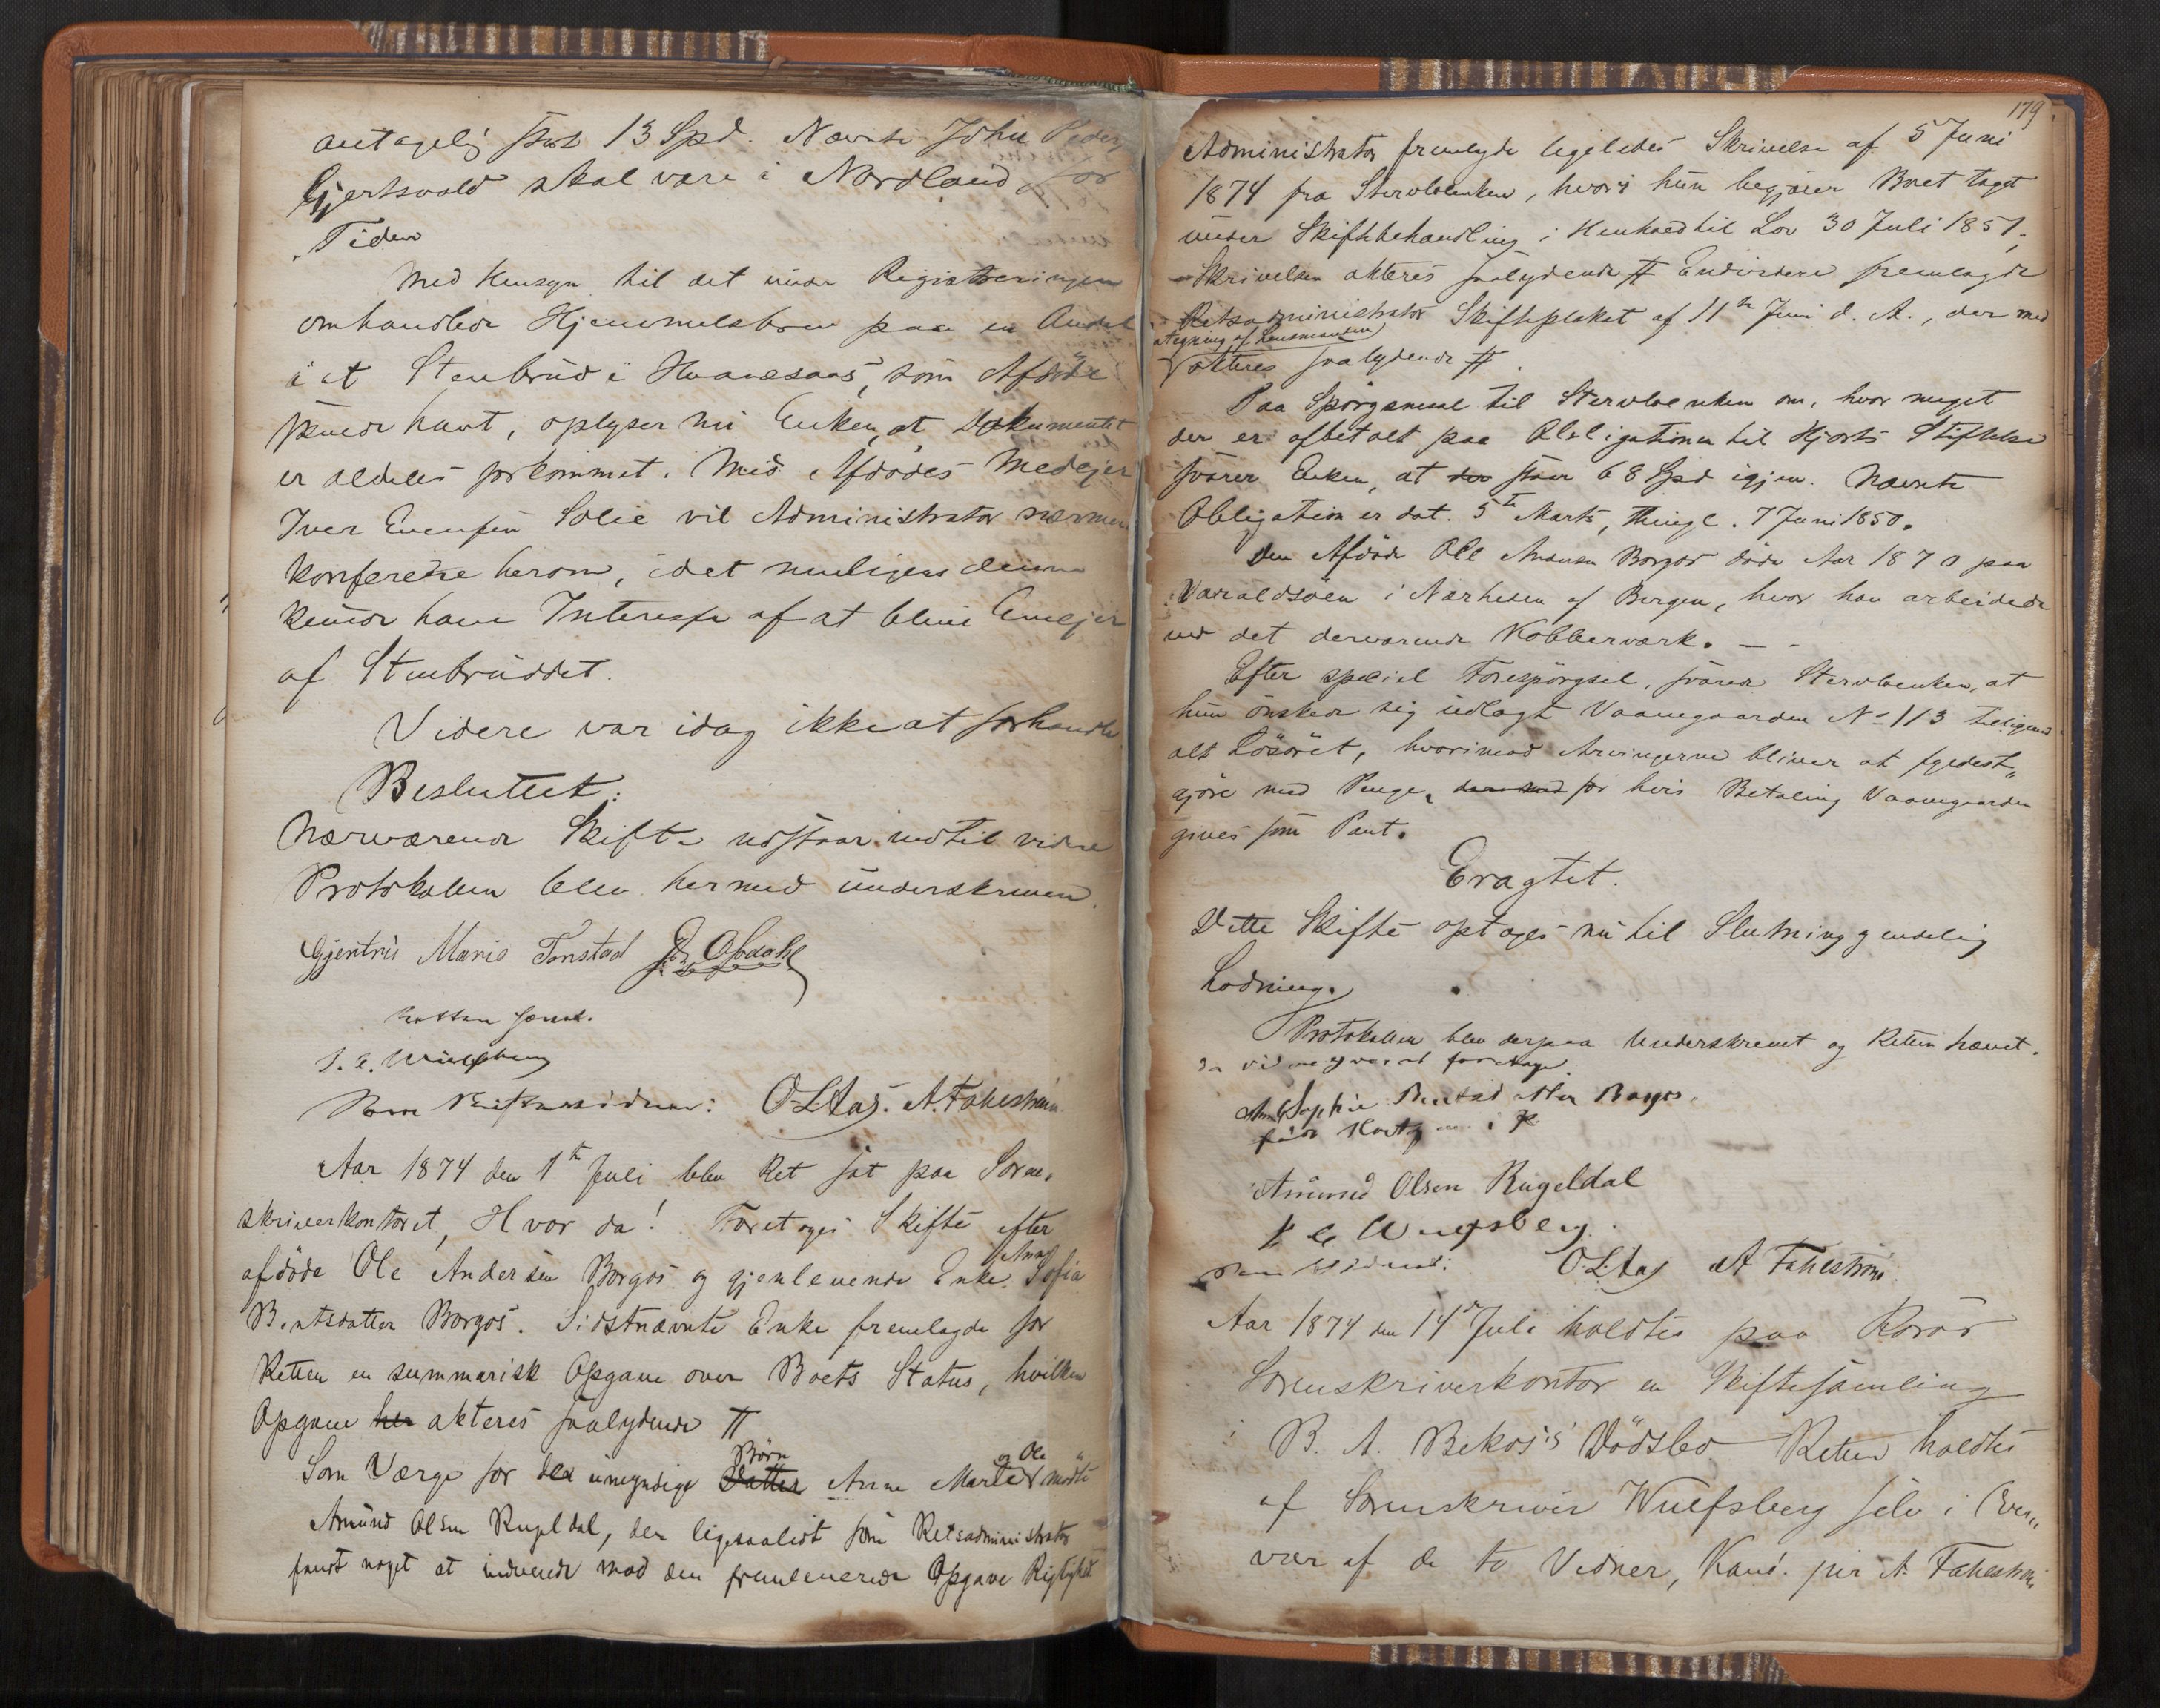 antagelig stort 13 Spd. Nævnte John Peders
Gjertsvold skal være i Nordland for
Tiden
Med Hensyn til det under Registreringen
omhandlede Hjemmelsbrev paa en Andel
i et Stenbrud i Kvarnesaas, som Afdøde
skulde havt, oplyser nu Enken, at Dokumentet
er aldeles forkommet. Med Afdødes Medejer
Iver Evensen Solie vil Administrator nærmere
konferere herom, idet muligens denne
kunde have Interesse af at blive Eneejer
af Stenbruddet.
Videre var idag ikke at forhandle.
Besluttet:
Nærværende Skifte udstaar indtil videre
Protokollen blev hermed underskreven.
Gjertrud Marie Tonstad Opdahl
Retten hævet.
J. C. Wulfsberg
Som Skiftevidner: O. L. Aas. A. Fahlstrøm
Aar 1874 den 1te Juli blev Ret sat paa Soren-
skriverkontoret, Hvor da! Foretoges Skifte efter
afdøde Ole Andersen Borgos og gjenlevende Enke Anne Sofia
Bentsdatter Borgos. Sidstnævnte Enke fremlagde for
Retten en summarisk Opgave over Boets Status, hvilken
Opgave her akteres saalydende #
Som Værge for de umyndige Datter Børn Anne Marte og Ole mødte
Amund Olsen Rugeldal, der ligesaalidt som Retsadministrator
fandt noget at indvende mod den fremleverede Opgave Rigtighed
179.
Administrator fremlagde ligeledes Skrivelse af 5 Juni
1874 fra Stervboenken, hvori hun begjærer Boet taget
under Skiftebehandling i Henhold til Lov 30 Juli 1851.
Skrivelsen akteres saalydende # Endvidere fremlagde
Retsadministrator Skifteplakat af 11te Juni d. A., der med
ategning af Lensmanden
akteres saalydende #.
Paa Spørgsmaal til Stervboenken om, hvor meget
der er afbetalt paa Obligationen til Hjorts Stiftelse
svarer Enken, at der staar 68 Spd igjen. Nævnte
Obligation er dat. 5te Marts, thingl. 7 Juni 1850.
Den Afdøde Ole Andersen Borgos døde Aar 1870 paa
Varaldsøen i Nærheden af Bergen, hvor han arbeidede
ved det derværende Kobberværk. —
Efter speciel Forespørgsel, svarer Stervboenken, at
hun ønskede sig udlagt Vaanegaarden No 113 tilligemed
alt Løsøret, hvorimod Arvingerne bliver at fyldest„
gjøre med Penge, der med for hvis Betaling Vaanegaarden
gives som Pant.
Eragtet.
Dette Skifte optages nu til Slutning og endelig
Lodning.
Protokollen blev derpaa Underskrevet og Retten hævet.
da videre ei var at foretage.
Anne Sophie Bentsdatter Borgos
Amund Olsen Rugeldal
J C Wulfsberg.
Som Vidner: O. L. Aas A Fahlstrøm
Aar 1874 den 14de Juli holdtes paa Røros
Sorenskriverkontor en Skiftesamling
i B. A. Bekos's Dødsbo Retten holdtes
af Sorenskriver Wulfsberg selv i Over„
vær af de to Vidner, Kand. jur A. Fahlstrøm